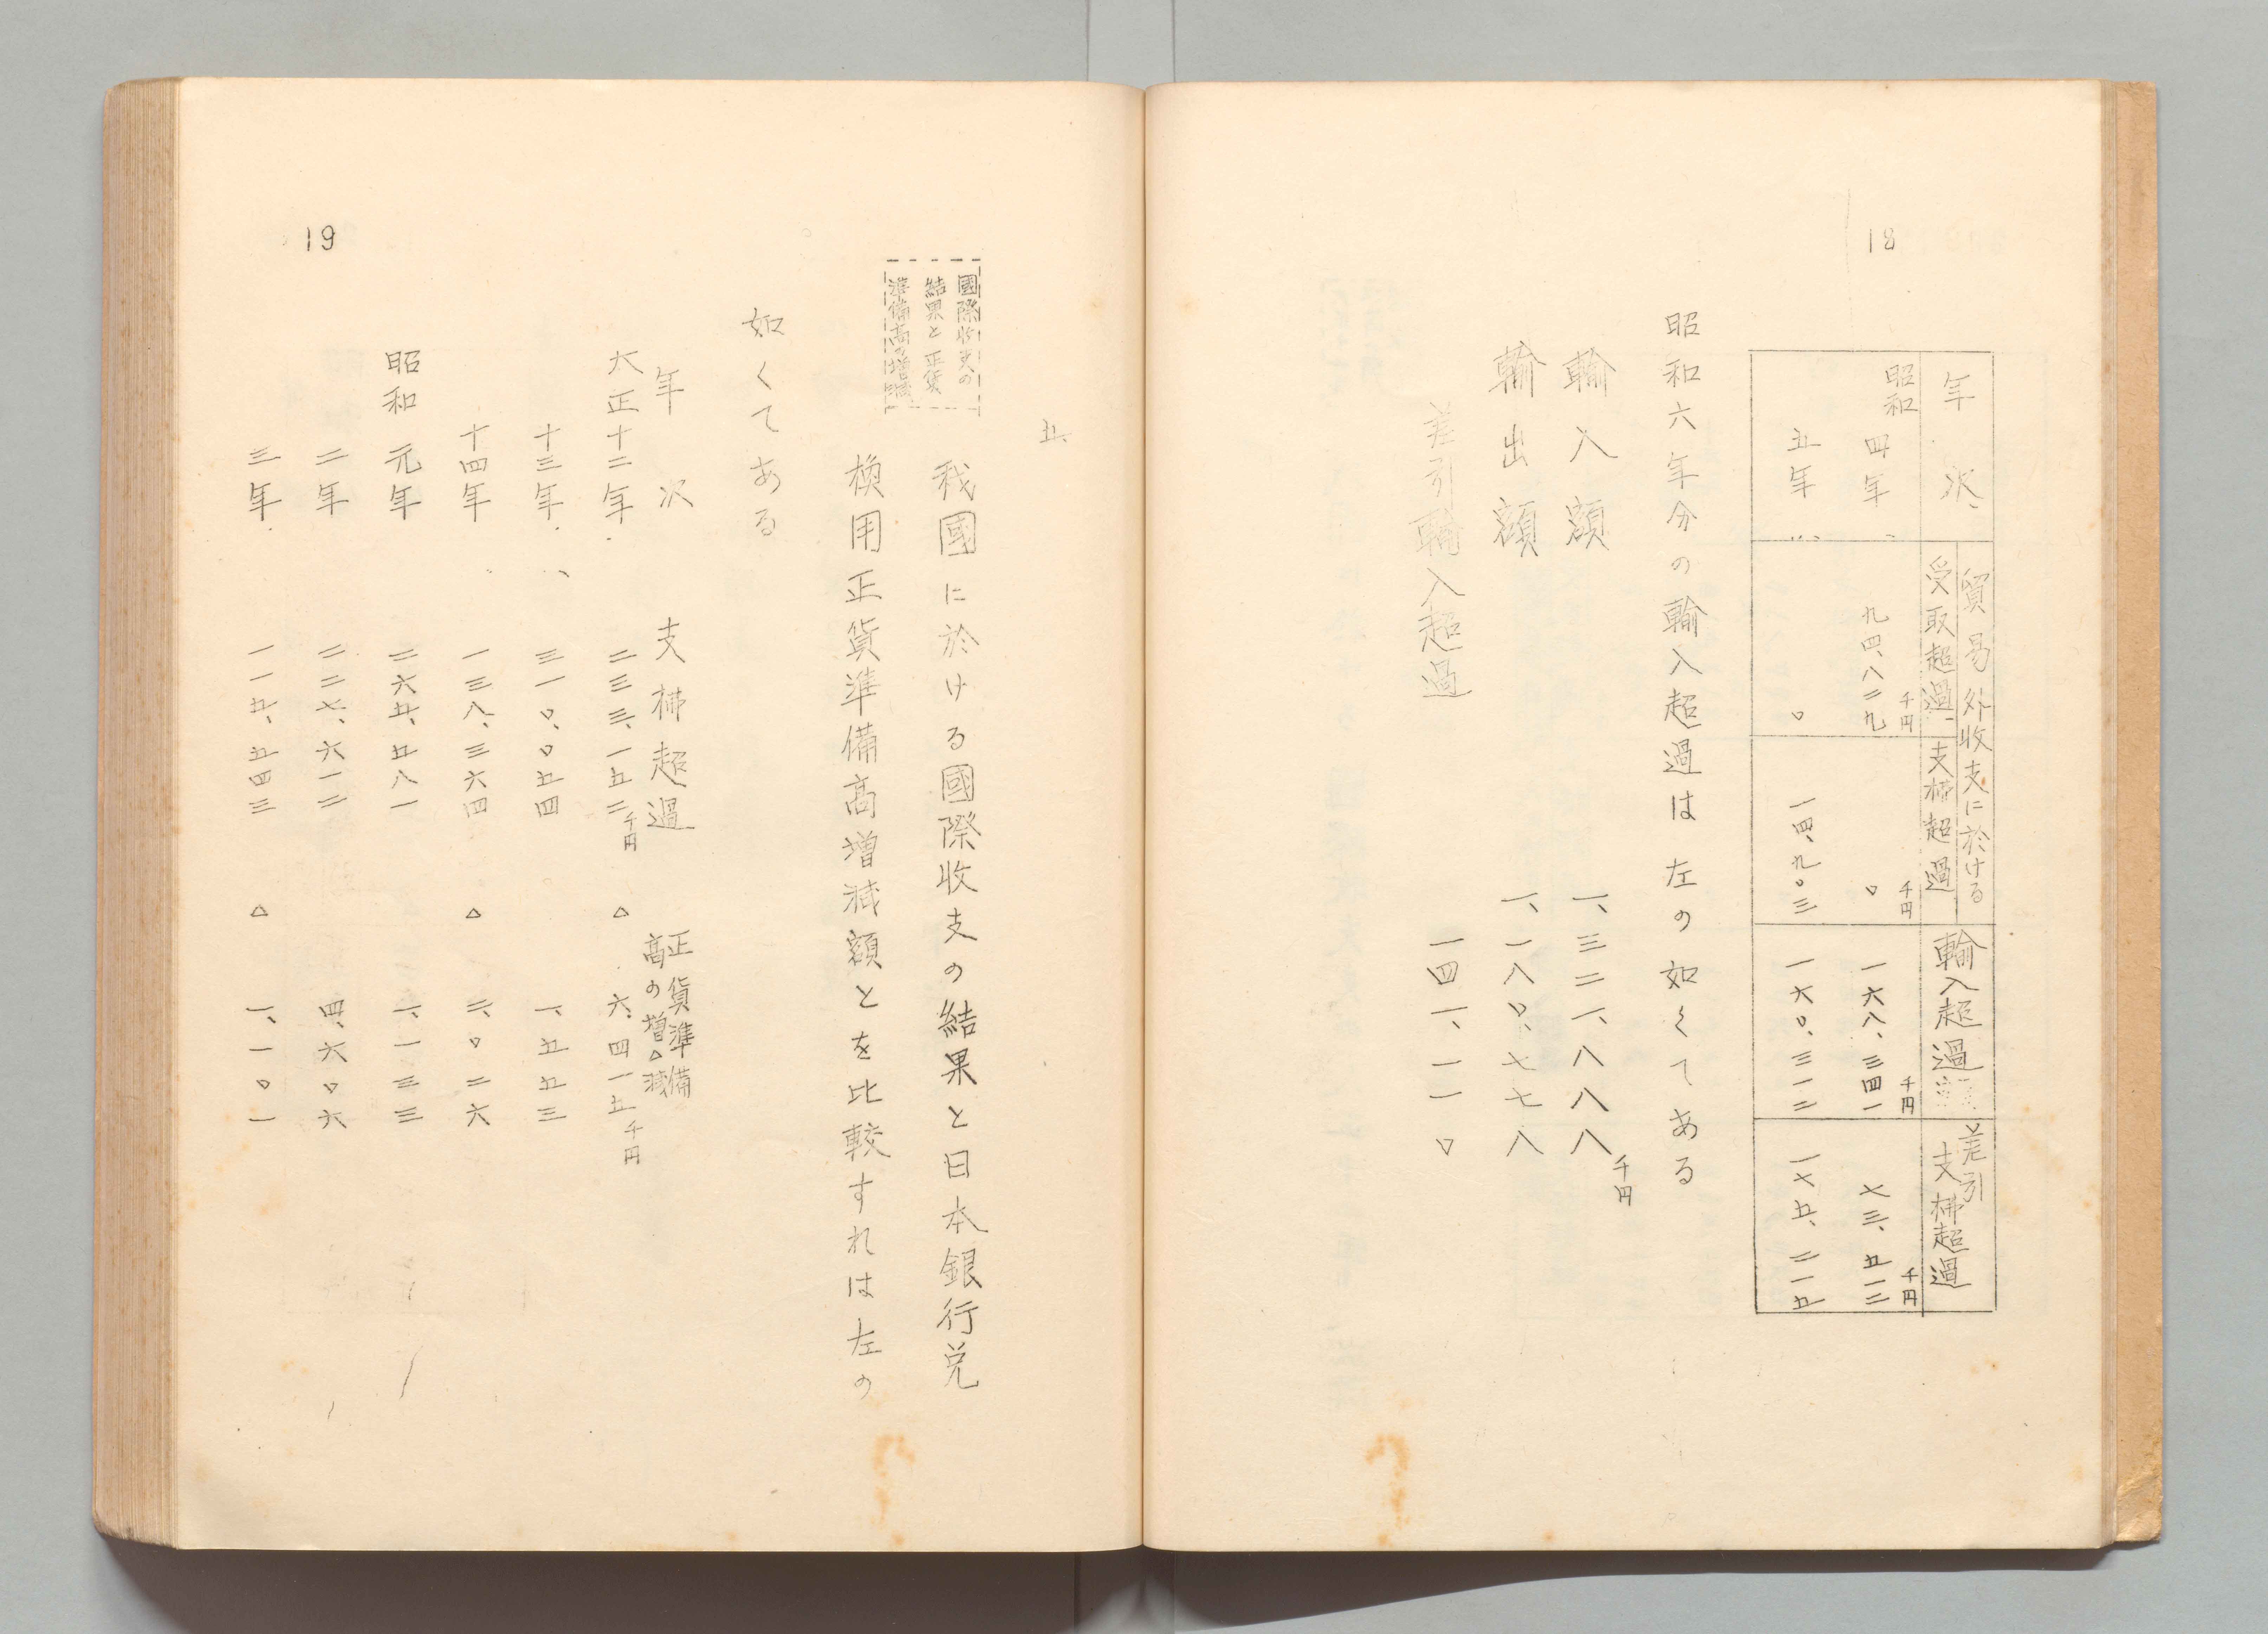 18
年次
貿易外收支に於ける
受取超過
支拂超過
輸入超過
差引
支拂超過
千円
千円
千円
千円
昭和四年
九四、八二九
〇
一六八、三四一
七三、五一二
五年
〇
一四、九〇三
一六〇、三一二
一七五、二一五
昭和六年分の輸入超過は左の如くてある
輸入額 一、三二一、八八八千円
輸出額 一、一八〇、七七八
差引輸入超過 一四一、一一〇
19
五、
國際收支の
結果と正貨
準備高の増減
我國に於ける國際收支の結果と日本銀行兌
換用正貨準備高増減額とを比較すれは左の
如くてある
年次 支拂超過 正貨準備
高の増△減
大正十二年 二三三、一五二千円 △ 六、四一五千円
十三年 三一〇、〇五四 一、五五三
十四年 一三八、三六四 △ 二、〇二六
昭和元年 二六五、五八一 一、一三三
二年 二二七、六一二 四、六〇六
三年 一一五、五四三 △ 一、一〇一